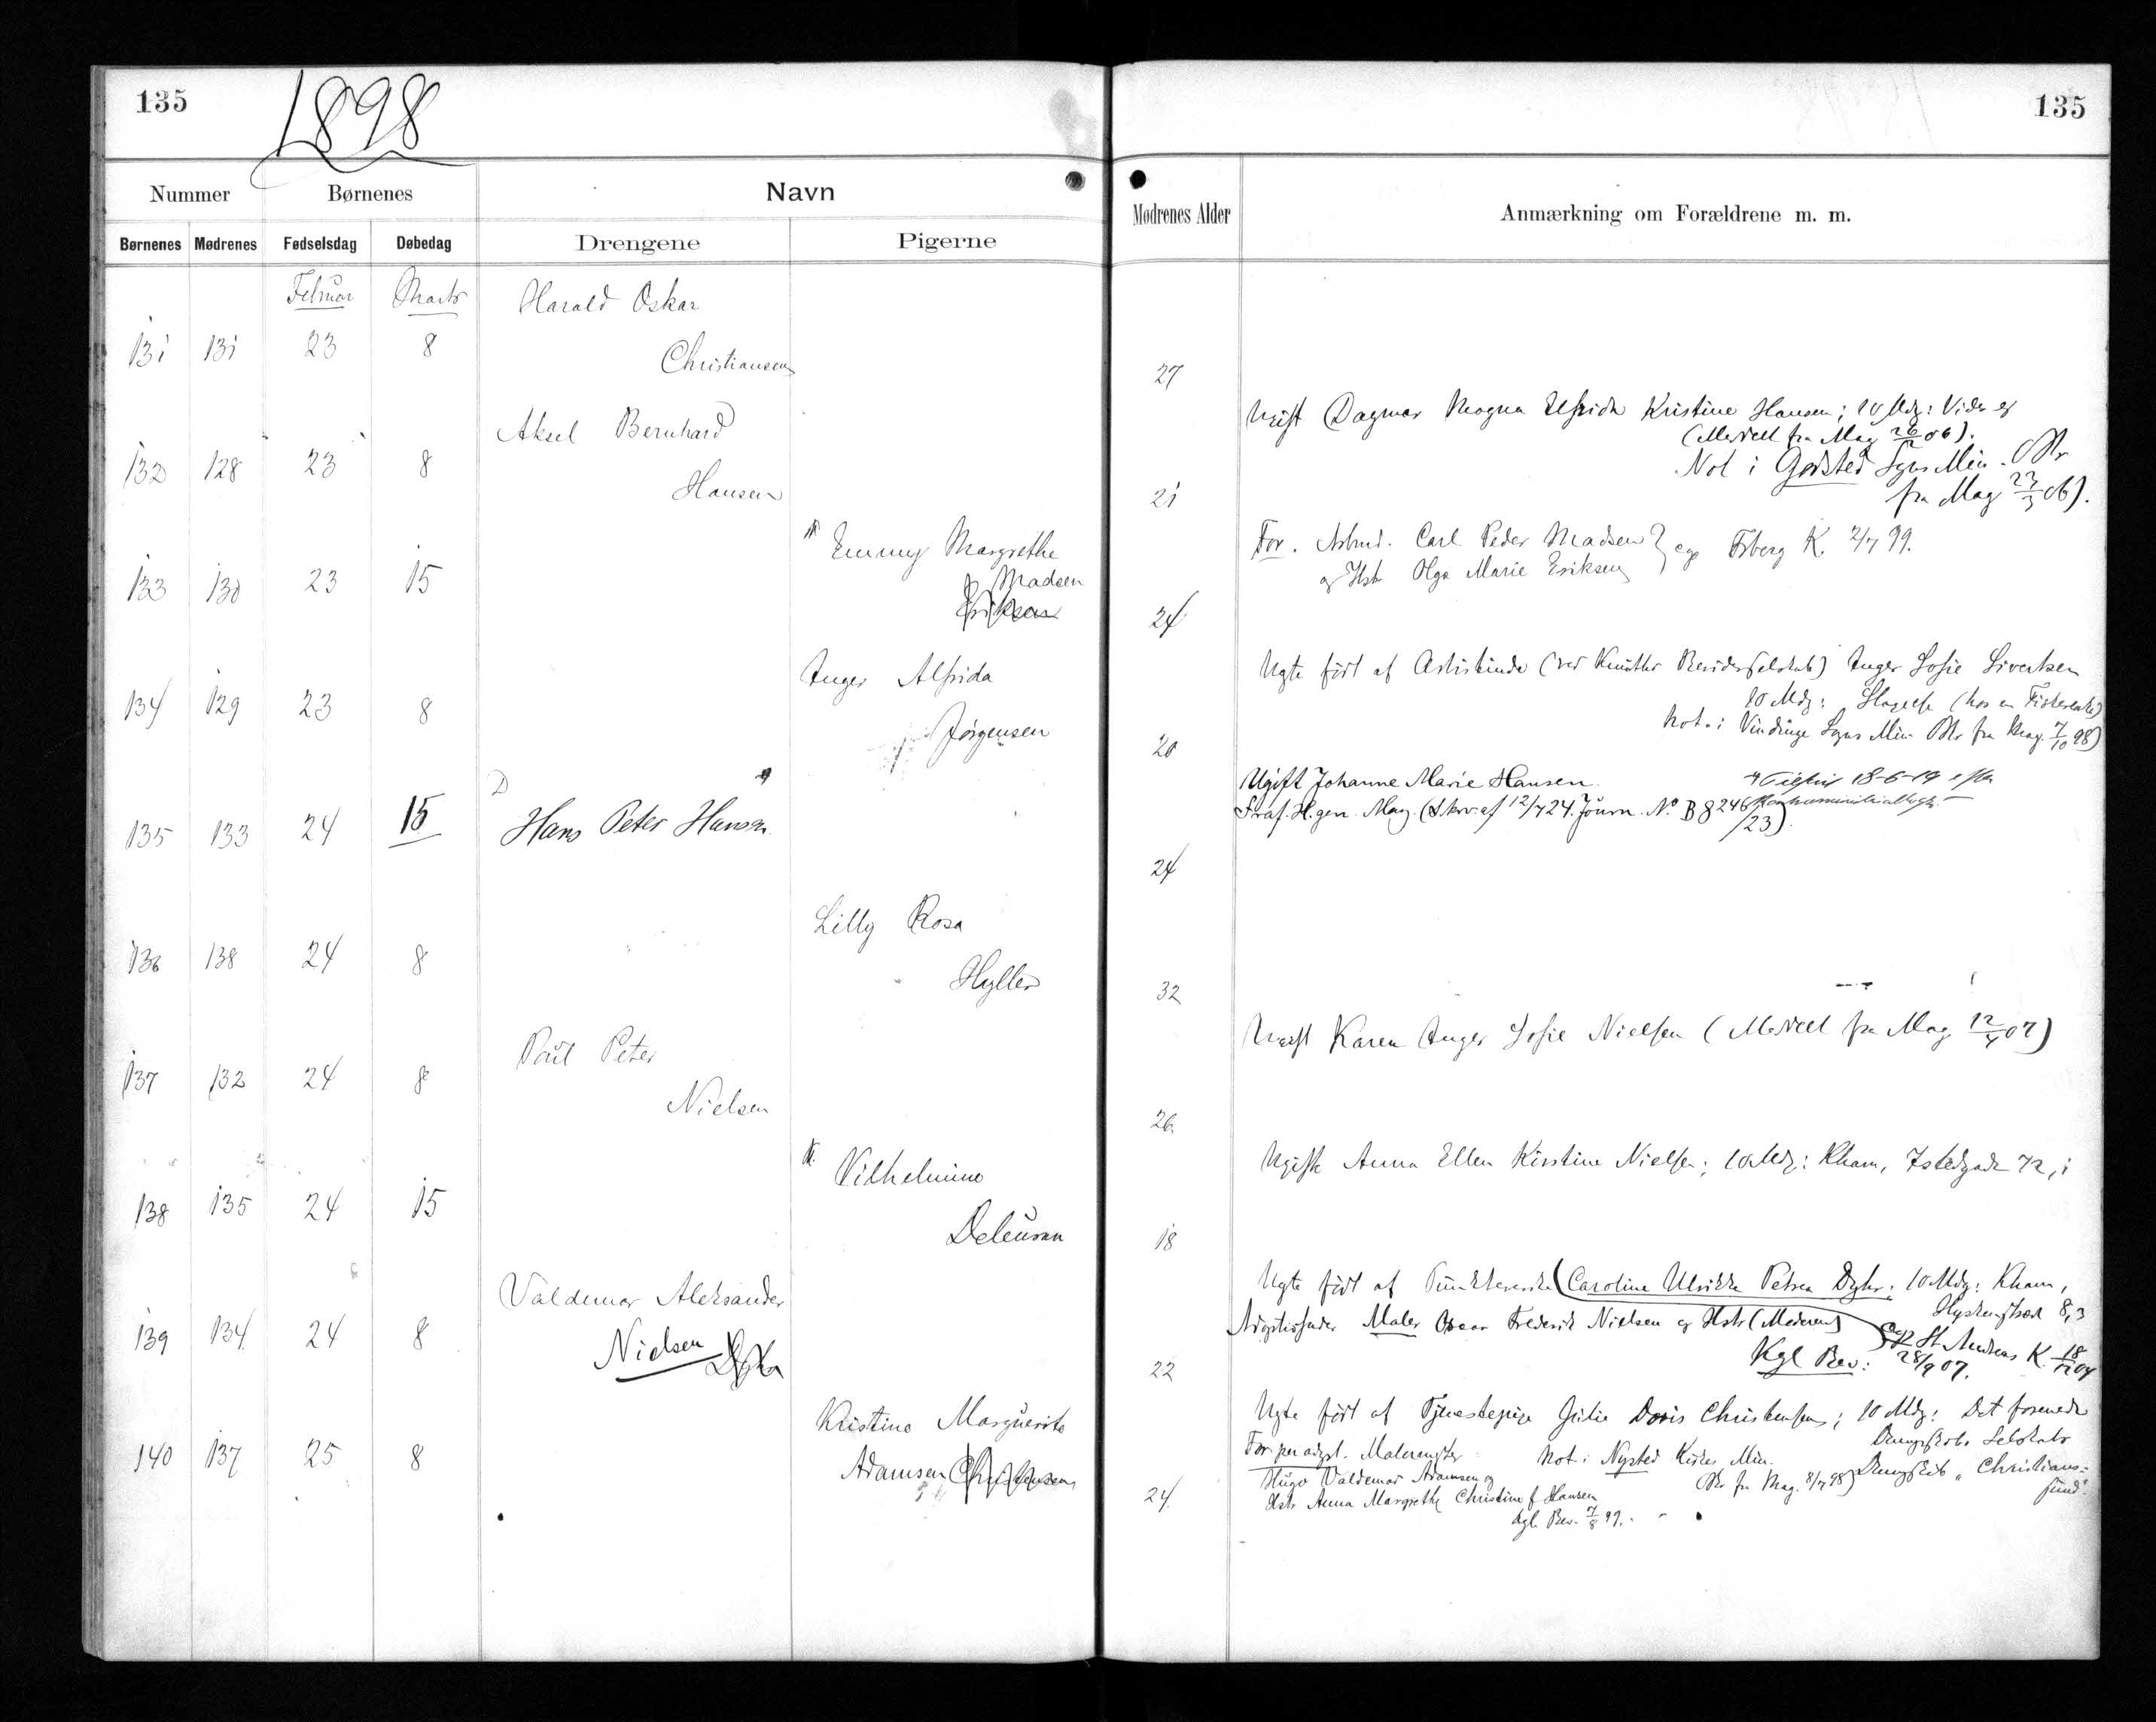 135
1898
135
Nummer Børnenes Navn
Mødrenes Alder Anmærkning om Forældrene m. m.
Børnenes Mødrenes Fødselsdag Døbedag Drengene Pigerne
Februar Marts Harald Oskar
131 131 23 8 Christiansen
27
Aksel Bernhard
132 128 23 8 Hansen
21
Ugift Dagmar Magna Kristine Hansen; 10 Mdg:
(Meddelt fra Mag 06).
Not i Sogns Min.
fra Mag 23/3 06).
Emmy Margrethe
133 130 23 15 Madsen
Eriksen
24
For. Arbmd. Carl Peder Madsen
og Hstr Olga Marie Eriksen
Frberg K. 2/7 99.
Inger Alfrida
134 129 23 8 Jørgensen
20
Ugte født af (ved) Inger Sofie Sivertsen
10 Mdg: Slagelse (hos en
Not. i Vindinge Sogns Min. fra Mag. 7/10 98)
135 133 24 15 Hans Peter Hansen
24
Ugift Johanne Marie Hansen.
Straf. H. gen. Mag. (Skrv. af 12/7 24. Journ. No B 8246
/23).
18-6-19
Lilly Rosa
136 138 24 8 Hyller
32
Poul Peter
137 132 24 8 Nielsen
26.
Ugift Karen Inger Sofie Nielsen (Meddelt fra Mag 12/4 07)
Vilhelmine
138 135 24 15 Deleuran
18
Ugift Anna Ellen Kirstine Nielsen; 10 Mdg: Kham, Istedgade 72, i
Valdemar Aleksander
139 134 24 8 Nielsen
22
Ugte født af Caroline Ulrikke Petrea Dyhr; 10 Mdg: Kham,
8, 3
Maler Oscar Frederik Nielsen og Hstr (Moderen)
St Andreas K.
Kgl Bev: 28/9 07.
Kristine Marguerite
140 137 25 8 Adamsen Christensen
24
Ugte født af Tjenestepige Julie Doris Christensen; 10 Mdg: Det forenede
Dampskibs Selskab
For. per adopt. Malermester Not. i Nysted Kirkes Min.
Hugo Valdemar Adamsen og fra Mag. 8/7 98) Dampskib „Christians-
sund"
Hstr Anna Margrethe Christine f. Hansen
Kgl. Bev. 7/8 99.